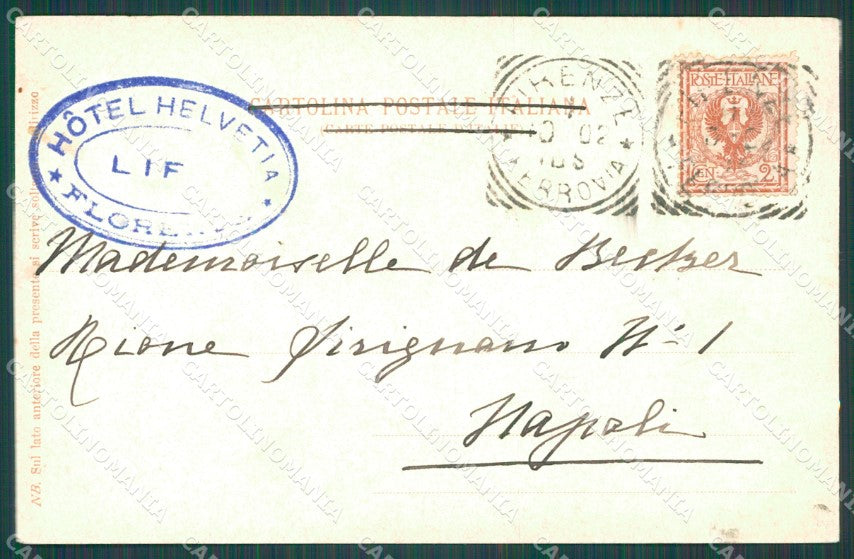 HÔTEL HELVETIA
LIF
FLORE
CARTOLINA POSTALE ITALIANA
FIRENZE
02
FERROVIA
POSTE ITALIANE
CEN 2
Mademoiselle de Becker
Rione Sirignano N° 1
Napoli
NB. Sul lato anteriore della presente si scrive
CARTOLINOMANIA